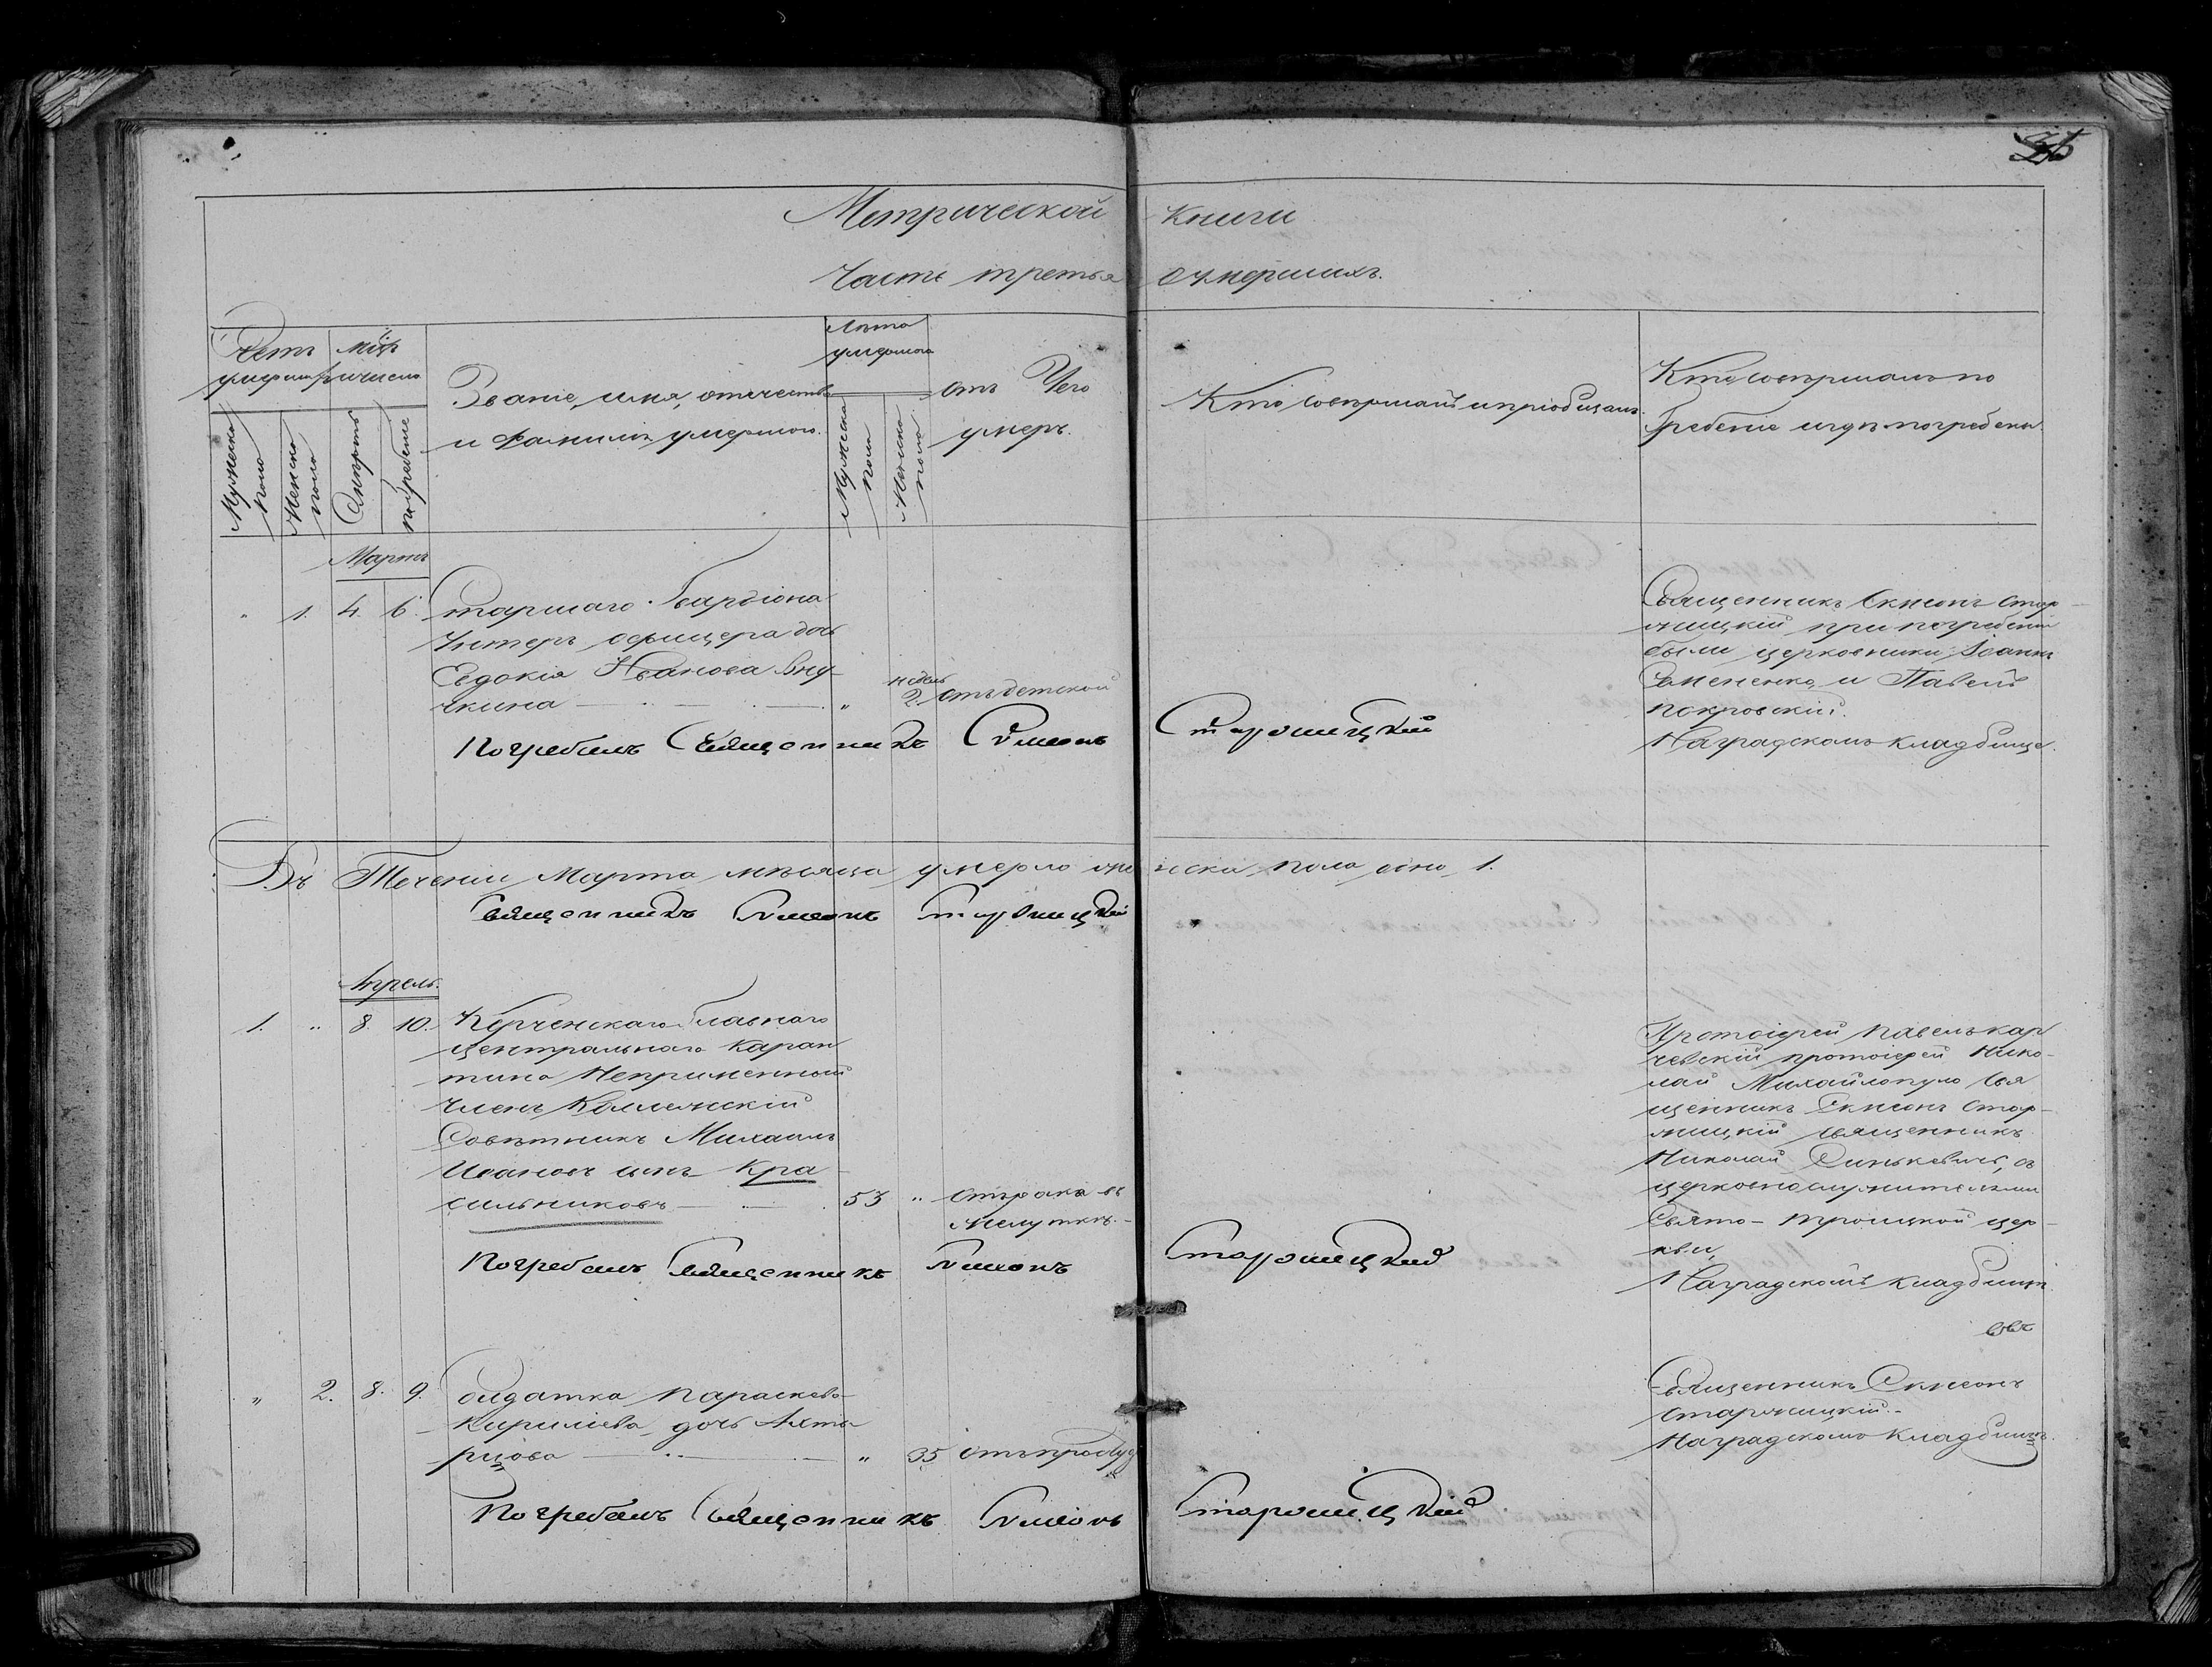 Метрической книги
Часть третья о умершихъ.
Счетъ умершихъ
Мужеска пола
Женска пола
Мѣсяцъ и число
Смерти
погребеніе
Званіе, имя, отечество
и Фамилія умершого.
Лѣта
умершого
Мужеска пола
Женска пола
отъ Чего
умеръ.
Кто совершалъ и пріобщалъ
Кто совершалъ по
гребеніе и гдѣ погребены
Мартъ
" 1. 4. 6. Старшаго Гвардіона
Унтеръ офицера дочь
Евдокія Иванова Вну-
чкина " недѣль 2 отъ детской
Священникъ Сімеонъ Стар-
жицкій при погребеніи
были церковники Іоаннъ
Семененко и Павелъ
Покровскій.
На градскомъ кладбище.
Погребалъ Священникъ Сімеонъ Старжицкій
Въ Теченіи Марта мѣсяца умерло женска пола одно 1.
Священникъ Сімеонъ Старжицкій
Апрель.
1. " 8. 10. Керченскаго Главнаго
центральнаго каран
тина Непременный
Членъ Коллежскій
Совѣтникъ Михаилъ
Ивановъ сынъ Кра
сильниковъ 53 " Отъ рака въ
желуткѣ.
Протоіерей Павелъ Кар
чевскій, протоіерей Нико-
лай Михайлопуло Свя
щенникъ Сімеонъ Стар-
жицкій священникъ
Николай Синькевичъ, съ
церковнослужителями
Свято-троицкой цер-
кви,
На градскомъ кладбищѣ
Погребалъ Священникъ Сімеонъ Старжицкій
" 2. 8. 9. Солдатка Параскева
Кирилева дочь Ахты
рцова " 35 Отъ простуд
Священникъ Сімеонъ
Старжицкій.
На градскомъ кладбищѣ.
Погребалъ Священникъ Сімеонъ Старжицкій